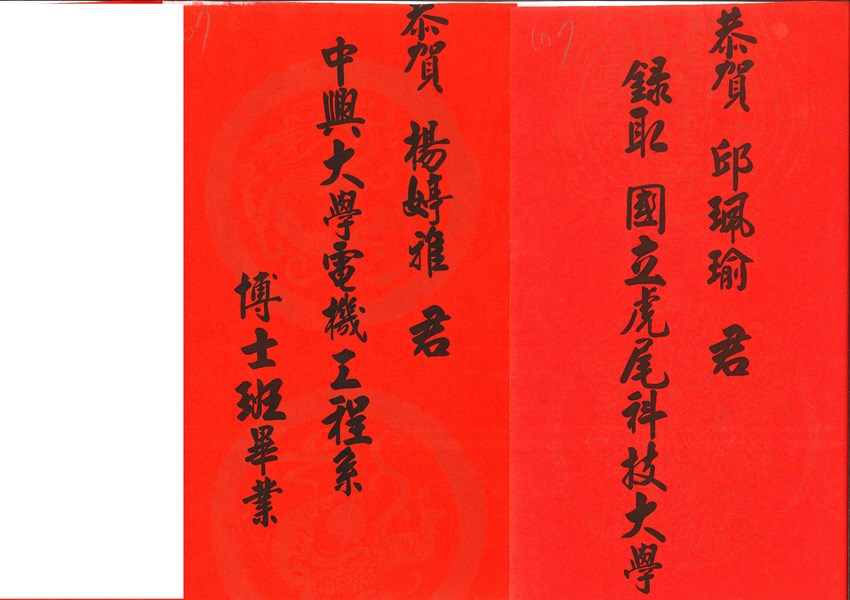 恭賀 邱珮瑜 君
錄取 國立虎尾科技大學
恭賀 楊婷雅 君
中興大學電機工程系
博士班畢業
107
107